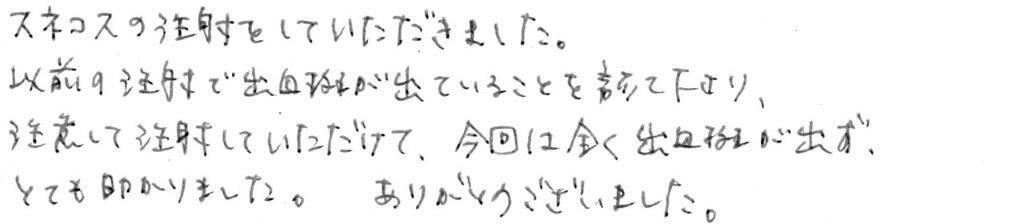 スネコスの注射をしていただきました。
以前の注射で出血斑が出ていることを診て下さり、
注意して注射していただけて、今回は全く出血斑が出ず、
とても助かりました。 ありがとうございました。